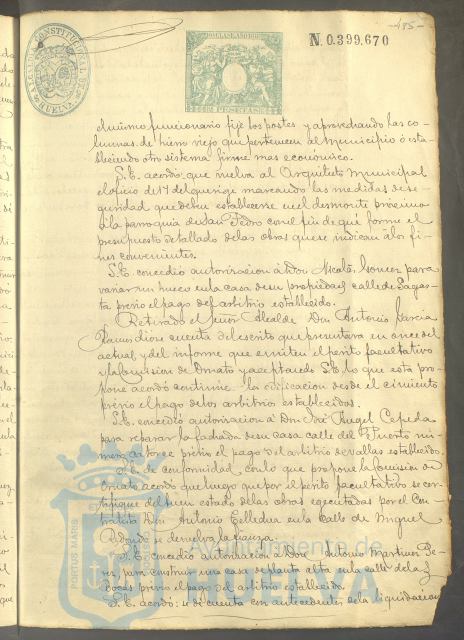 -485-
N.0.399.670
PESETAS
AYUNTAMIENTO CONSTITUCIONAL DE HUELVA
el mismo funcionario fije los postes y aprovechando las co-
lumnas de hierro viejo que pertenecen al Municipio ó esta-
bleciendo otro sistema firme mas económico.
S.E. acordó que vuelva al Arquitecto Municipal
el oficio del 17 del que rige marcando las medidas de se-
guridad que deben establecerse en el desmonte próximo
á la parroquia de San Pedro con el fin de que forme el
presupuesto detallado de las obras que se indican á los fi-
nes convenientes.
S.E. concedió autorización á Don Nicolás Gomez para
variar un hueco en la casa de su propiedad calle de Sagas-
ta previo el pago del arbitrio establecido.
Retirado el Señor Alcalde Don Antonio García
Ramos dióse cuenta del escrito que presentara en once del
actual y del informe que emiten el perito facultativo
y la Comision de Ornato y aceptando S.E. lo que esta pro-
pone acordó continúe la edificacion desde el cimiento
previo el pago de los arbitrios establecidos.
S.E. concedió autorizacion á Don José Rugel Cepeda
para reparar la fachada de su casa calle del Puerto nú-
mero catorce previo el pago del arbitrio de vallas establecido.
S.E. de conformidad con lo que propone la Comision de
Ornato acordó que luego que por el perito facultativo se cer-
tifique del buen estado de las obras ejecutadas por el Con-
tratista Don Antonio Telledua en la calle de Miguel
Redondo se devuelva la fianza.
S.E. concedió autorizacion á Don Antonio Martinez Pe-
rez para construir una casa de planta alta en la calle de la
previo el pago del arbitrio establecido.
S.E. acordó: se dé cuenta con antecedentes de la liquidacion
PORTUS MARIS
Ayuntamiento de
HUELVA